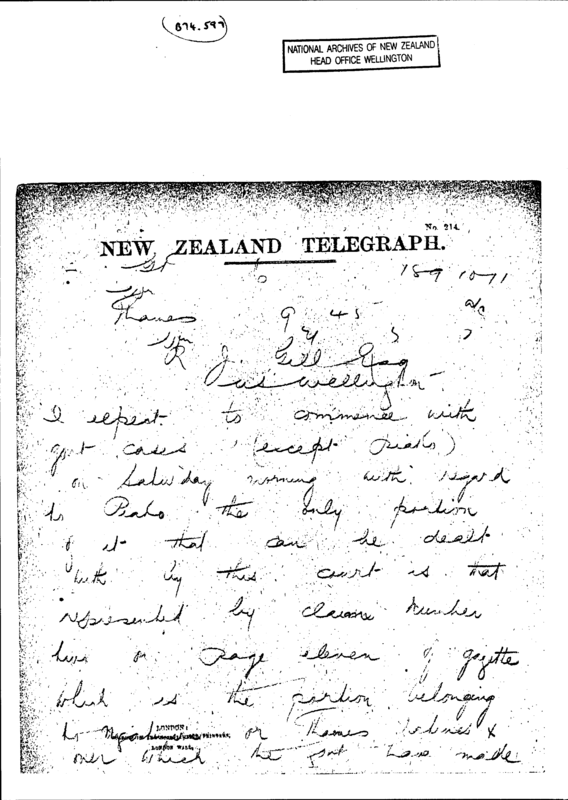 (B74.597)
NATIONAL ARCHIVES OF NEW ZEALAND
HEAD OFFICE WELLINGTON
No. 214.
NEW ZEALAND TELEGRAPH.
Thames 9 45
R J. Gill Esq
Wellington
I expect to commence with
govt cases (except Piako)
on Saturday morning with regard
to Piako the only portion
of it that can be dealt
with by this court is that
represented by claim number
two on page eleven of gazette
which is the portion belonging
to or Thames &
LONDON:
LONDON WALL.
over which the govt have made